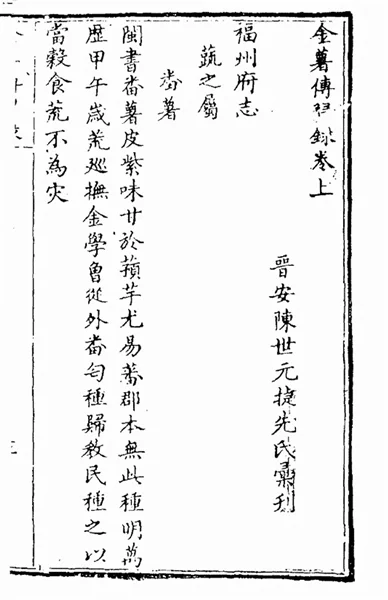 金薯傳習錄卷上
晉安陳世元捷先氏彙刊
福州府志
蔬之屬
番薯
閩書番薯皮紫味甘於蘋芋尤易蕃郡本無此種明萬
歷甲午歲荒巡撫金學曾從外番匄種歸教民種之以
當穀食荒不為灾